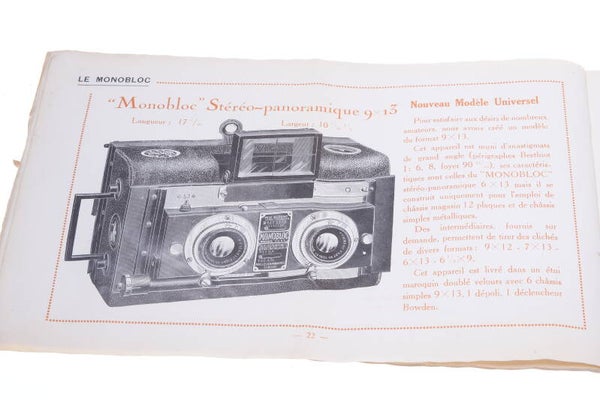 LE MONOBLOC
"Monobloc" Stéréo-panoramique 9×13
Longueur : 17
Largeur : 10
Nouveau Modèle Universel
Pour satisfaire aux désirs de nombreux
amateurs, nous avons créé un modèle
du format 9×13.
Cet appareil est muni d'anastigmats
de grand angle (périgraphes Berthiot
1: 6, 8, foyer 90 ), ses caractéris-
tiques sont celles du "MONOBLOC"
stéréo-panoramique 6×13 mais il se
construit uniquement pour l'emploi de
châssis magasin 12 plaques et de châssis
simples métalliques.
Des intermédiaires, fournis sur
demande, permettent de tirer des clichés
de divers formats : 9×12 - 7×13 -
6×13 - 6 ½×9.
Cet appareil est livré dans un étui
maroquin doublé velours avec 6 châssis
simples 9×13, 1 dépoli, 1 déclencheur
Bowden.
MONOBLOC
— 22 —